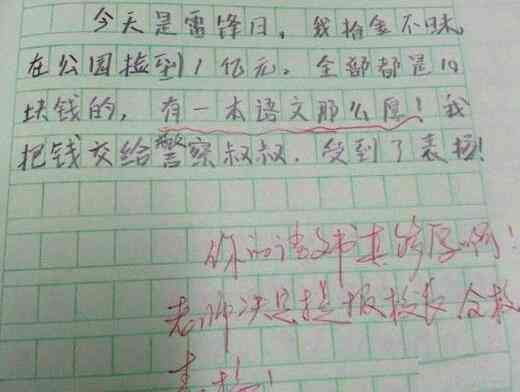 今天是雷锋日，我拾金不昧，
在公园捡到1亿元。全部都是10
块钱的，有一本语文那么厚！我
把钱交给警察叔叔，受到了表扬！
你的语文书真够厚啊！
老师决定提报校长全校
表扬！